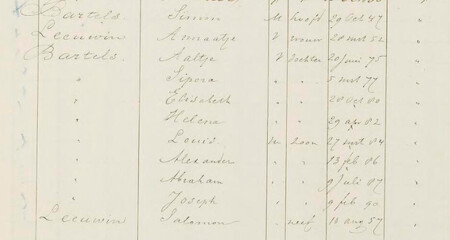 Bartels Simon M hoofd 29 Oct 47 "
Leeuwin Annaatje V vrouw 28 mrt 52 "
Bartels Aaltje V dochter 20 Juni 75 "
" Sipora " " 5 mrt 77 "
" Elisabeth " " 28 Oct 80 "
" Helena " " 29 apr 82 "
" Louis M zoon 27 84 "
" Alexander " " 13 feb 86 "
" Abraham " " 9 Juli 87 "
" Joseph " " 9 feb 90 "
Leeuwin Salomon " neef 16 aug 57 "